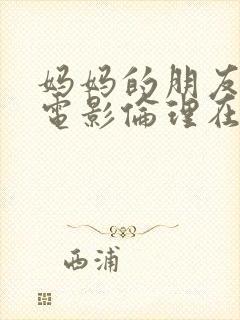 妈妈的朋友
電影倫理在
西浦